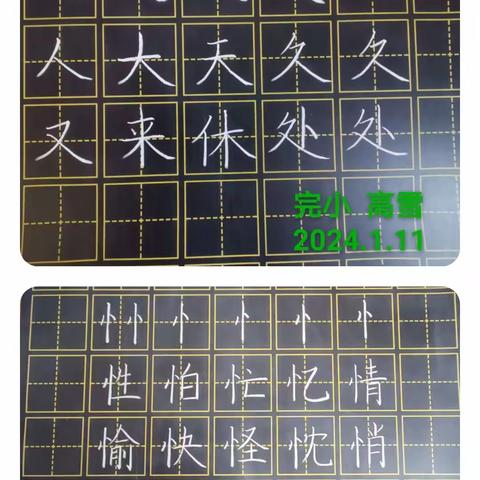 人大天久久
又来休处处
完小 高雪
2024.1.11
忄忄忄忄忄忄
性怕忙忆情
愉快怪忱悄